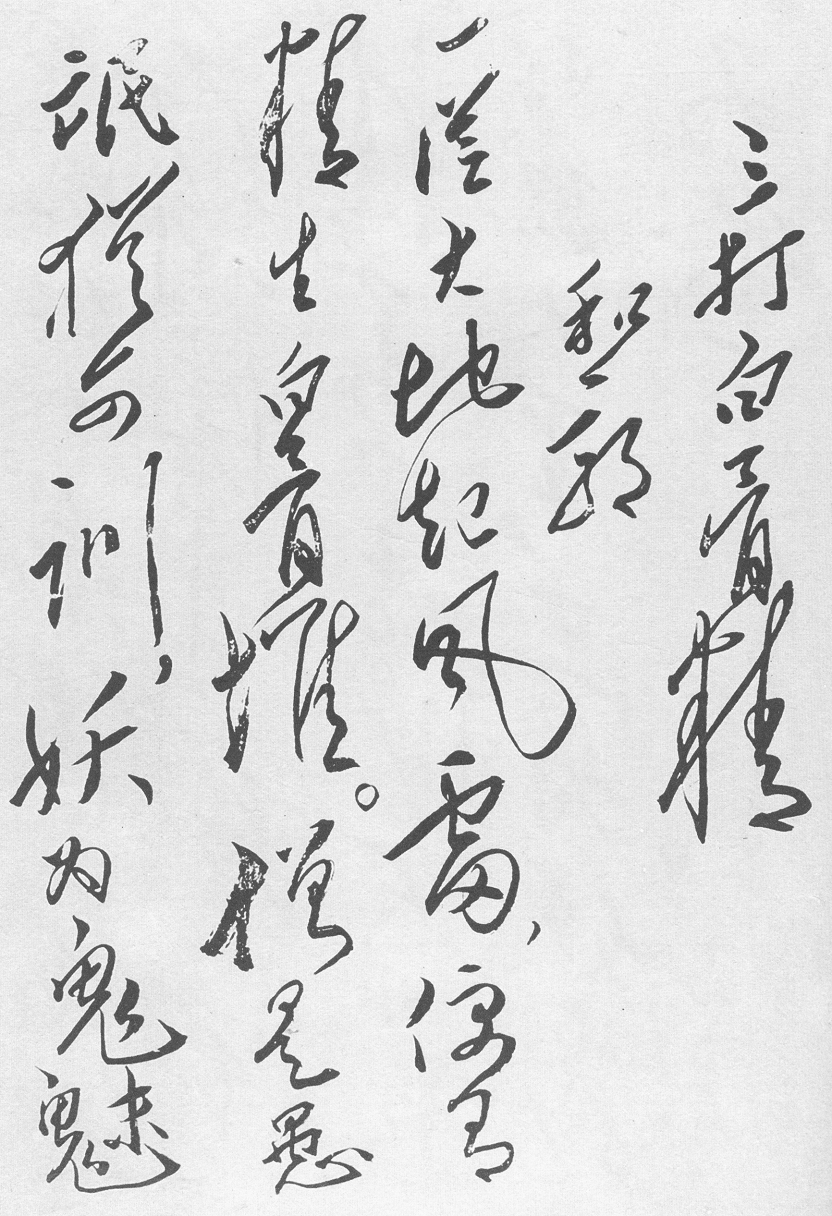 三打白骨精
和郭
一從大地起风雷，便有
精生白骨堆。僧是愚
氓猶可訓，妖为鬼魅